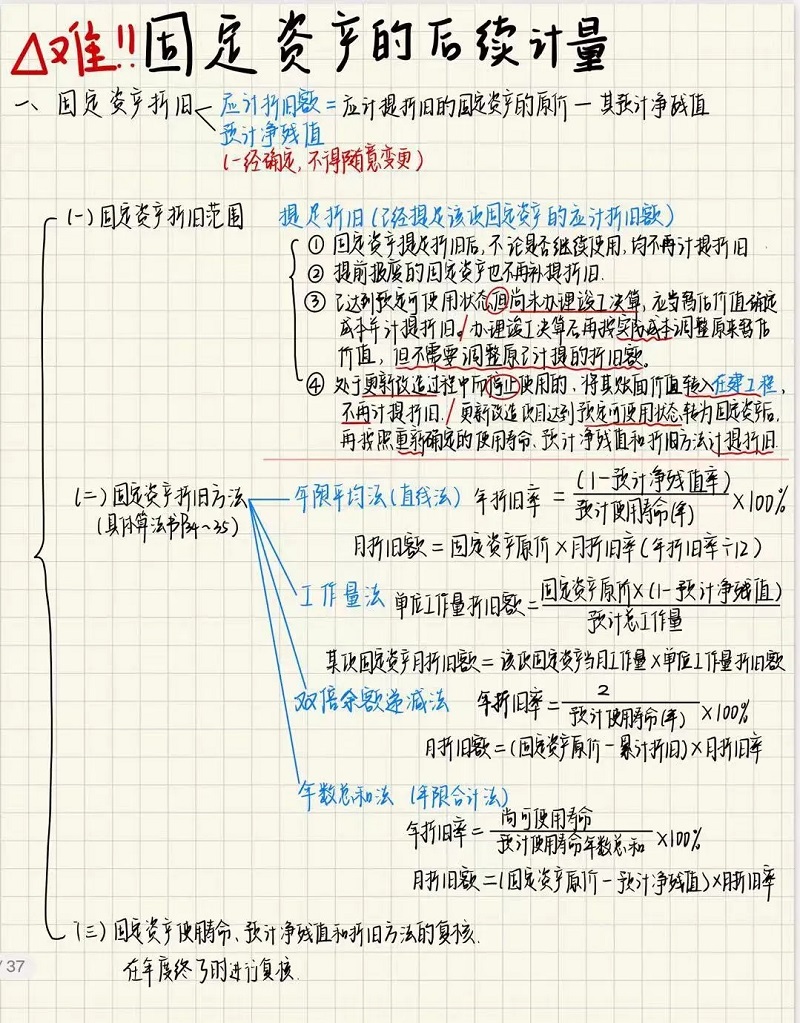 △难!!固定资产的后续计量
一、固定资产折旧 应计折旧额=应计提折旧的固定资产的原价-其预计净残值
预计净残值
(一经确定,不得随意变更)
(一)固定资产折旧范围 提足折旧(已经提足该项固定资产的应计折旧额)
① 固定资产提足折旧后,不论是否继续使用,均不再计提折旧
② 提前报废的固定资产也不再补提折旧.
③ 已达到预定可使用状态,但尚未办理竣工决算,应当暂估价值确定
成本并计提折旧。/办理竣工决算后再按实际成本调整原来暂估
价值,但不需要调整原已计提的折旧额。
④ 处于更新改造过程中而停止使用的、将其账面价值转入在建工程,
不再计提折旧./更新改造项目达到预定可使用状态转为固定资产后,
再按照重新确定的使用寿命、预计净残值和折旧方法计提折旧.
(二)固定资产折旧方法 年限平均法(直线法) 年折旧率=(1-预计净残值率)/预计使用寿命(年)×100%
(具体算法书P34~35)
月折旧额=固定资产原价×月折旧率(年折旧率÷12)
工作量法 单位工作量折旧额=固定资产原价×(1-预计净残值)/预计总工作量
某项固定资产月折旧额=该项固定资产当月工作量×单位工作量折旧额
双倍余额递减法 年折旧率=2/预计使用寿命(年)×100%
月折旧额=(固定资产原价-累计折旧)×月折旧率
年数总和法(年限合计法)
年折旧率=尚可使用寿命/预计使用寿命年数总和×100%
月折旧额=(固定资产原价-预计净残值)×月折旧率
(三)固定资产使用寿命、预计净残值和折旧方法的复核.
在年度终了时进行复核.
/37